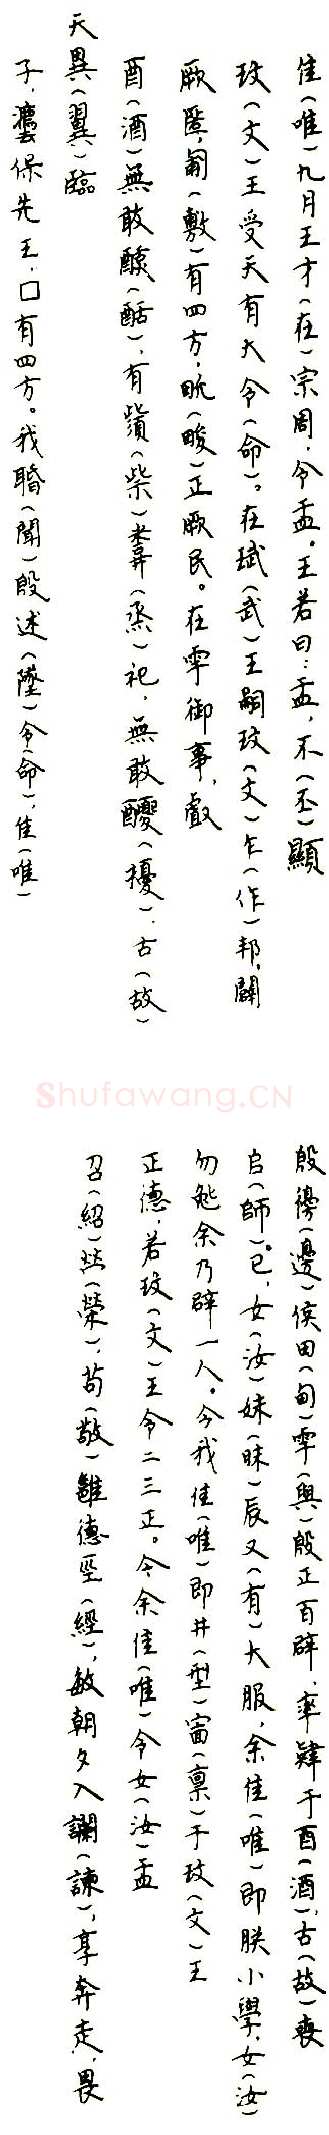 隹(唯)九月王才(在)宗周,令盂。王若曰:盂,不(丕)顯
玟(文)王受天有大令(命)。在珷(武)王嗣玟(文)乍(作)邦,闢
厥匿,匍(敷)有四方,畯(畯)正厥民。在雩御事,䖒
酉(酒)無敢酖(酣),有髭(柴)蒸(烝)祀,無敢醻(擾)。古(故)
天異(翼)臨
子,灋保先王,□有四方。我聞(聞)殷述(墜)令(命),隹(唯)
Shufawang.CN
殷邊(邊)侯田(甸)雩(與)殷正百辟,率肄于酉(酒),古(故)喪
𠂤(師)。已,女(汝)妹(昧)辰又(有)大服,余隹(唯)即朕小學,女(汝)
勿𠤳余乃辟一人。今我隹(唯)即井(型)㐭(禀)于玟(文)王
正德,若玟(文)王令二三正。今余隹(唯)令女(汝)盂
召(紹)焂(榮),苟(敬)雝德巠(經),敏朝夕入讕(諫),享奔走,畏